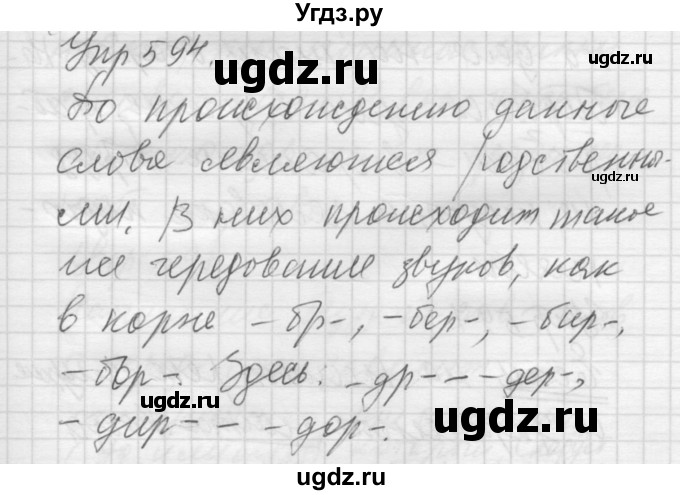 Угдз.ру
Упр 594.
ugdz.ru
По происхождению данные
ugdz.ru
слова являются родственны-
ugdz.ru
ми. В них происходит такое
же чередование звуков, как
ugdz.ru
ugdz.ru
в корне -бр-, -бер-, -бир-,
-бор-. Здесь: -др- - -дер-,
ugdz.ru
-дир- - -дор-.
ugdz.ru
ugdz.ru